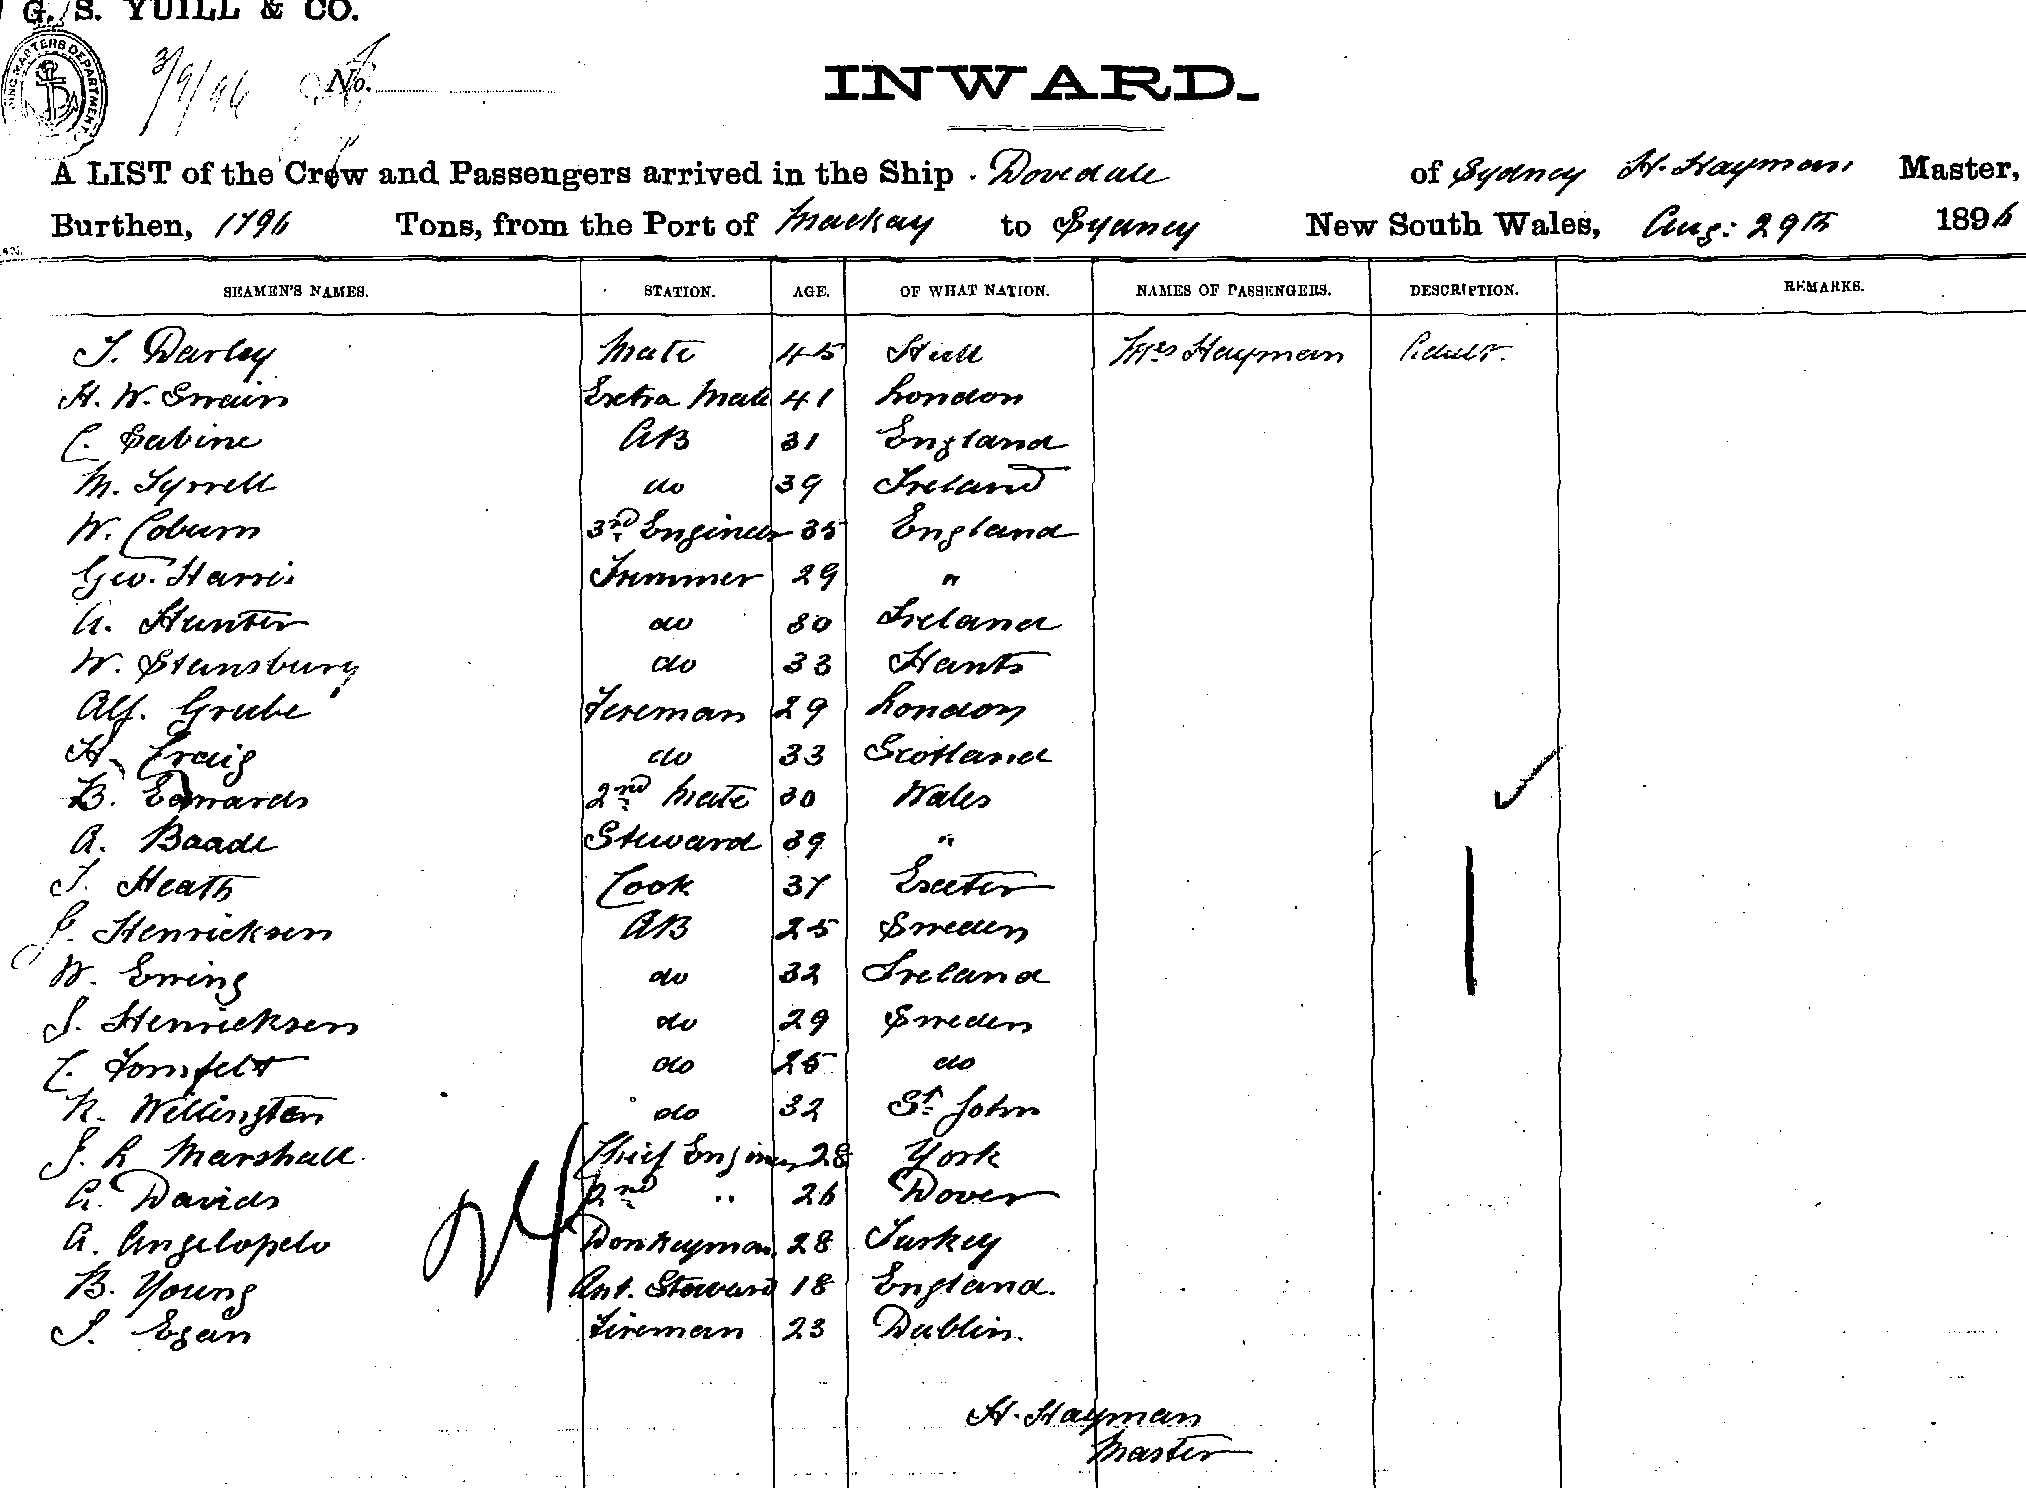 G. S. YUILL & CO.
3/9/96 No.
INWARD.
A LIST of the Crew and Passengers arrived in the Ship Dovedale of Sydney H. Hayman Master,
Burthen, 1796 Tons, from the Port of Mackay to Sydney New South Wales, Aug: 29th 1896
SEAMEN'S NAMES. STATION. AGE. OF WHAT NATION. NAMES OF PASSENGERS. DESCRIPTION. REMARKS.
J. Darley Mate 45 Hull Mrs Hayman Adult.
H. W. Swain Extra Mate 41 London
C. Sabine AB 31 England
M. Tyrrell do 39 Ireland
W. Coburn 3rd Engineer 35 England
Geo. Harris Trimmer 29 "
A. Hunter do 30 Ireland
W. Stansbury do 33 Hants
Alf. Grube Fireman 29 London
H. Craig do 33 Scotland
B. Edwards 2nd Mate 30 Wales
A. Baade Steward 39 "
J. Heath Cook 37 Exeter
J. Henricksen AB 25 Sweden
W. Ewing do 32 Ireland
J. Henricksen do 29 Sweden
C. do 25 do
R. Wellington do 32 St. John
J. L Marshall. Chief Engineer 28 York
A. Davids 2nd " 26 Dover
A. Angelopelo Donkeyman 28 Turkey
B. Young Ast. Steward 18 England.
J. Egan Fireman 23 Dublin.
24
H. Hayman
Master